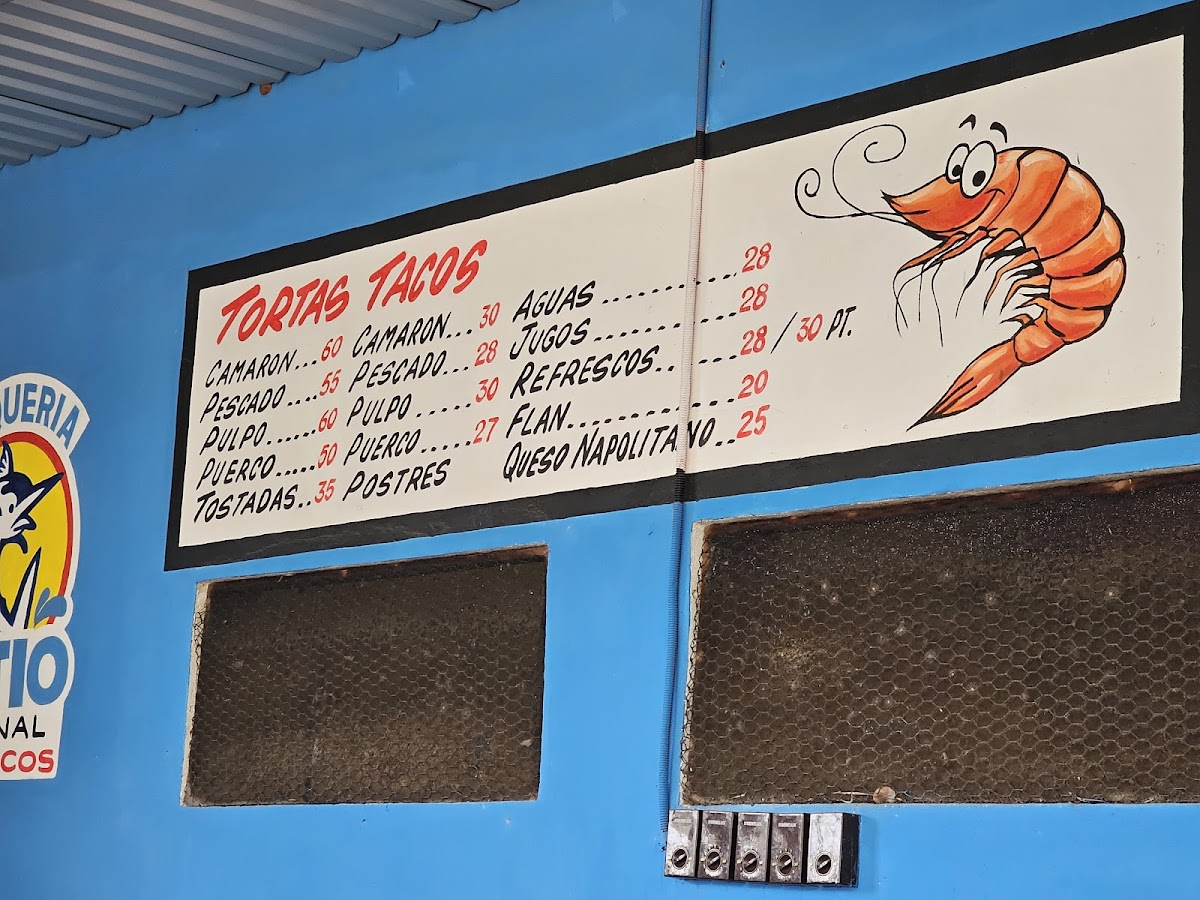 TORTAS TACOS
CAMARON...60
PESCADO....55
PULPO......60
PUERCO.....50
TOSTADAS..35
CAMARON...30
PESCADO...28
PULPO.....30
PUERCO.....27
POSTRES
AGUAS..........28
JUGOS...........28
REFRESCOS.. ....28 / 30 PT.
FLAN............20
QUESO NAPOLITANO..25
UERIA
TIO
NAL
COS